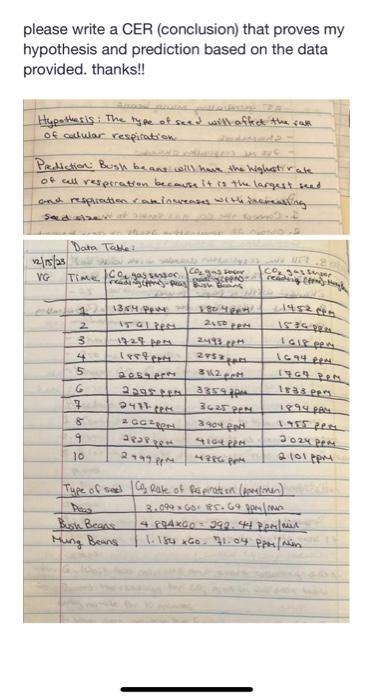 please write a CER (conclusion) that proves my
hypothesis and prediction based on the data
provided. thanks!!
Hypothesis: The type of seed will affect the rate
of cellular respiration
Prediction: Bush beans will have the highest rate
of cell respiration because it is the largest seed
and respiration rate increases with increasing
seed size
Data Table:
12/15/23
VG Time CO2 gas sensor reading (ppm)- Peas CO2 gas sensor Bush Beans CO2 gas sensor reading (ppm)
1 1354 ppm 1804 ppm 1452 ppm
2 1561 ppm 2150 ppm 1536 ppm
3 1729 ppm 2493 ppm 1618 ppm
4 2853 ppm 1694 ppm
5 2059 ppm 3112 ppm 1769 ppm
6 3359 ppm 1833 ppm
7 3625 ppm 1894 ppm
8 3904 ppm 1955 ppm
9 2828 ppm 4164 ppm 2024 ppm
10 2999 ppm 4386 ppm 2101 ppm
Type of seed CO2 Rate of Respiration (ppm/min)
Peas 85.69 ppm/min
Bush Beans 4.874x60= 292.44 ppm/min
Mung Beans 1.184 x60= 71.04 ppm/min